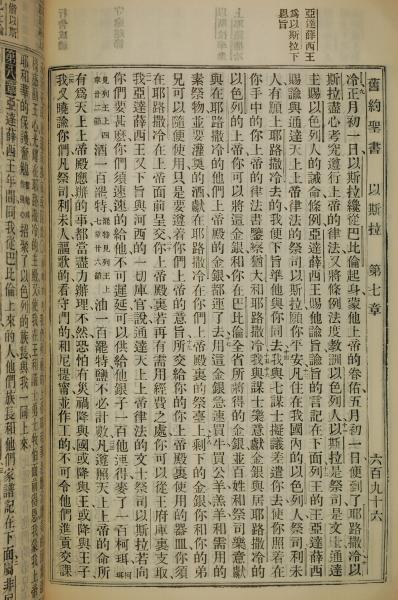 舊約聖書 以斯拉 第七章 六百九十六
亞達薛西王
爲以斯拉下
恩旨
冷正月初一日以斯拉纔從巴比倫起身蒙他上帝的眷佑五月初一日便到了耶路撒冷以
斯拉盡心考究遵行上帝的律法又將條例法度教訓以色列人以斯拉是祭司是文士通達
主賜以色列人的誡命條例亞達薛西王賜他諭旨諭旨的言記在下面列王的王亞達薛西
賜諭與通達天上上帝律法的祭司以斯拉願你平安凡住在我國内的以色列人祭司利未
人有願上耶路撒冷去的我使下旨準他與你同去我與七謀士擬議差遣你去使你照着在
你手中的你上帝的律法書鑒察猶大和耶路撒冷我與謀士樂意獻金銀與居耶路撒冷的
以色列的上帝你可以將這金銀和你在巴比倫全省所將得的金銀並百姓和祭司樂意獻
與在耶路撒冷他們上帝殿的金銀都運了去用這金銀急速買牛買公羊羔羊和需用的
素祭物並要灌奠的酒獻在耶路撒冷在你們上帝殿裏的祭臺上剩下的金銀你和你的弟
兄可以隨便使用只是要遵着你們上帝的意旨所交給你的你上帝殿裏使用的器皿你須
在耶路撒冷在上帝面前呈交你上帝殿裏若再有需用經費之處你可以從王府庫裏支取
我亞達薛西王又下旨與河西的一切庫官說通達天上上帝律法的文士祭司以斯拉若向
你們要甚麽你們須速速的給他不可遲延可以供給他銀子一百他連得麥子一百柯珥
見列王上四章廿二節酒一百罷特罷特見列王上七章廿六節油一百罷特鹽不必計數凡遵照天上上帝的命所
有爲天上上帝殿應辦的事都當盡力辦理不然恐怕有災禍降與國或降與王或降與王子
我又曉諭你們凡祭司利未人謳歌的看守門的和尼提甯並作工的不可令他們進貢交課
耶和華的保護奮勉招聚了以色列的族長與我一同上來
第八章亞達薛西王年間同我從巴比倫上來的人他們族長和他們家譜記在下面